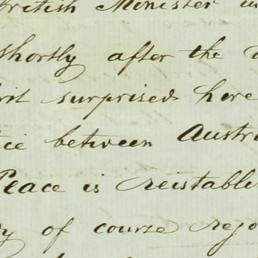 British Minister
shortly after the
surprised here
between Austr
Peace is reistable
of course rejo